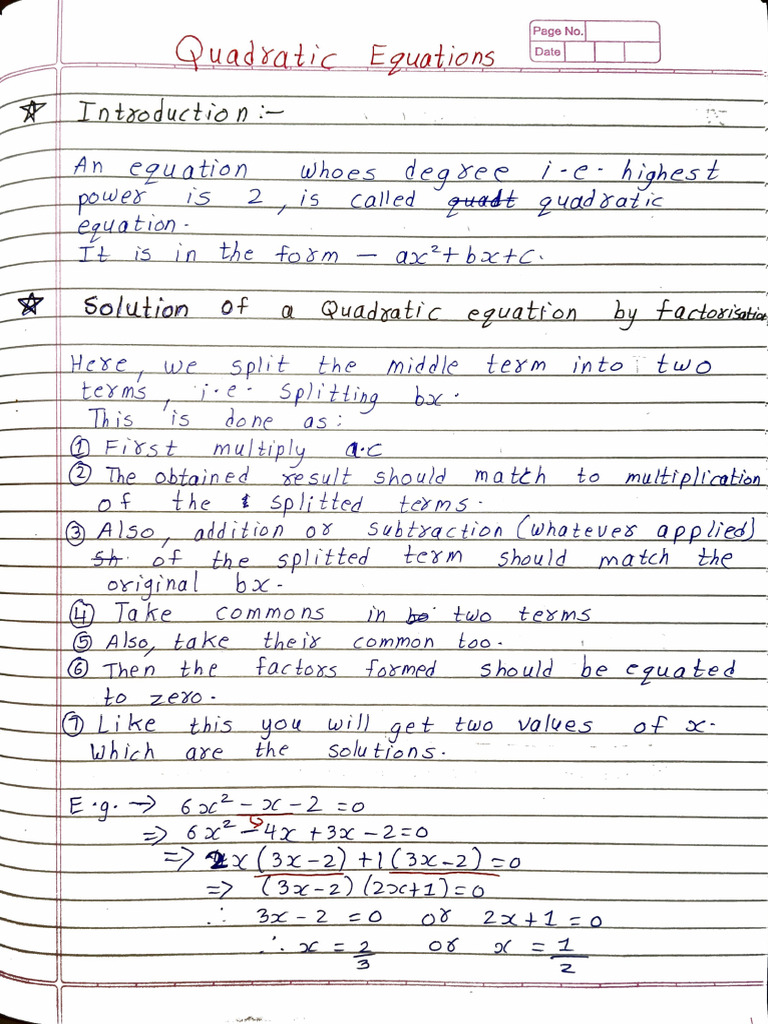 Quadratic Equations
Page No.
Date
☆ Introduction :-
An equation whoes degree i-e- highest
power is 2 , is called quadt quadratic
equation.
It is in the form — ax² + bx + c.
☆ Solution of a Quadratic equation by factorisation
Here, we split the middle term into two
terms, i.e. splitting bx.
This is done as:
① First multiply a.c
② The obtained result should match to multiplication
of the splitted terms.
③ Also, addition or subtraction (whatever applied)
sh. of the splitted term should match the
original bx.
④ Take commons in two terms
⑤ Also, take their common too.
⑥ Then the factors formed should be equated
to zero.
⑦ Like this you will get two values of x.
Which are the solutions.
E.g. → 6x² - x - 2 = 0
⇒ 6x² - 4x + 3x - 2 = 0
⇒ 2x (3x - 2) + 1 (3x - 2) = 0
⇒ (3x - 2) (2x + 1) = 0
∴ 3x - 2 = 0 or 2x + 1 = 0
∴ x = 2/3 or x = 1/2